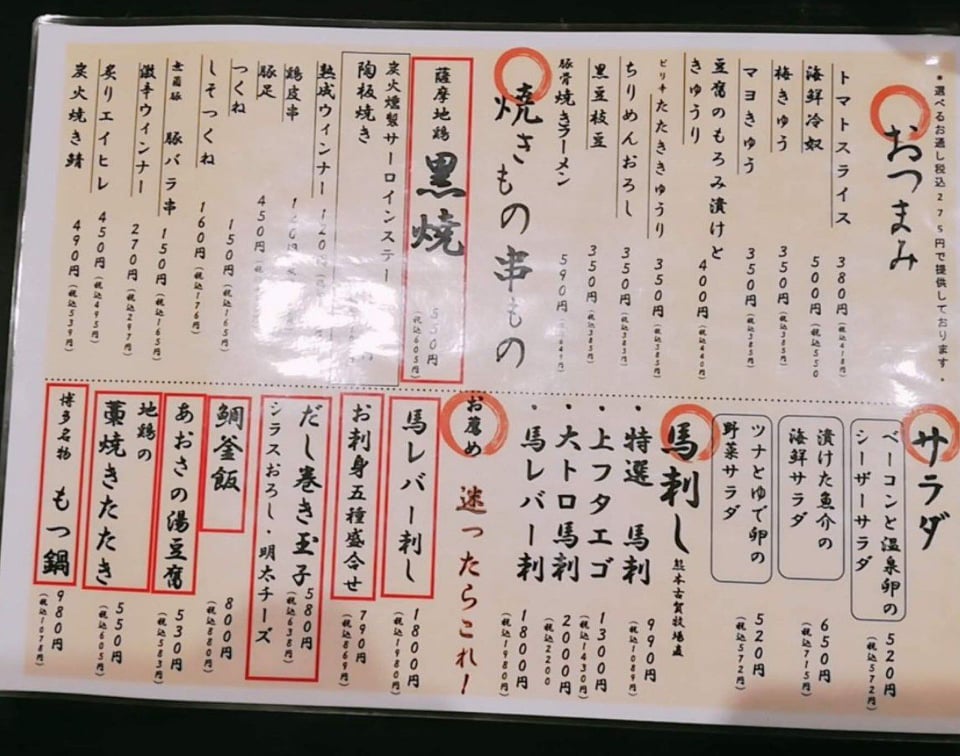 *選べるお通し税込275円で提供しております。
おつまみ
トマトスライス 380円(税込418円)
海鮮冷奴 500円(税込550
梅きゅう 350円(税込385円)
マヨきゅう 350円(税込385円)
豆腐のもろみ漬けと
きゅうり 400円(税込440円)
ピリ辛たたききゅうり 350円(税込385円)
ちりめんおろし 350円(税込385円)
黒豆枝豆 350円(税込385円)
豚骨焼きラーメン 590円(税込649円)
焼きもの串もの
薩摩地鶏 黒焼 550円(税込605円)
炭火燻製サーロインステー
陶板焼き
熟成ウィンナー
鶏皮串
豚足 450円
つくね 150円(税込165円)
しそつくね 160円(税込176円)
豚バラ串 150円(税込165円)
激辛ウィンナー 270円(税込297円)
炙りエイヒレ 450円(税込495円)
炭火焼き鯖 490円(税込539円)
サラダ
ベーコンと温泉卵の
シーザーサラダ 520円(税込572円)
漬けた魚介の
海鮮サラダ 650円(税込715円)
ツナとゆで卵の
野菜サラダ 520円(税込572円)
馬刺し 熊本古賀牧場直
特選 馬刺 990円(税込1089円)
・上フタエゴ 1300円(税込1430円)
・大トロ馬刺 2000円(税込2200
・馬レバー刺 1800円(税込1980円)
お薦め 迷ったらこれ!
馬レバー刺し 1800円(税込1980円)
お刺身五種盛合せ 790円(税込869円)
だし巻き玉子 580円(税込638円)
シラスおろし・明太チーズ
鯛釜飯 800円(税込880円)
あおさの湯豆腐 530円(税込583円)
地鶏の
藁焼きたたき 550円(税込605円)
博多名物 もつ鍋 980円(税込1078円)